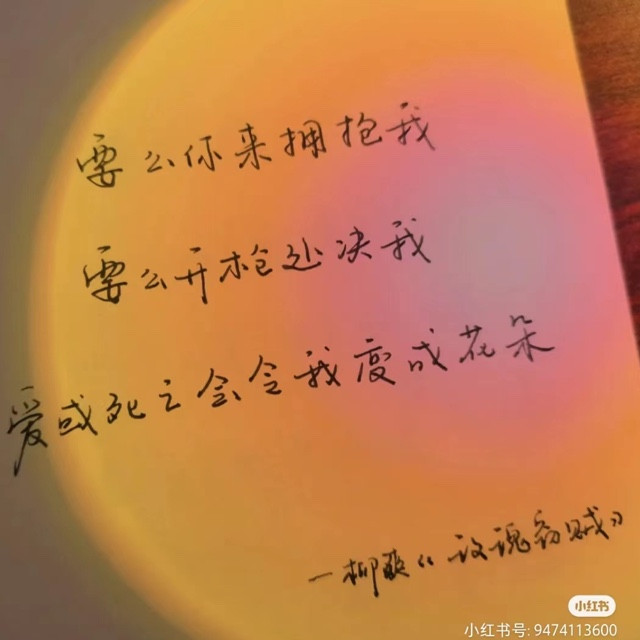 要么你来拥抱我
要么开枪处决我
爱或死亡会令我变成花朵
一柳歌《玫瑰窃贼》
小红书
小红书号: 9474113600